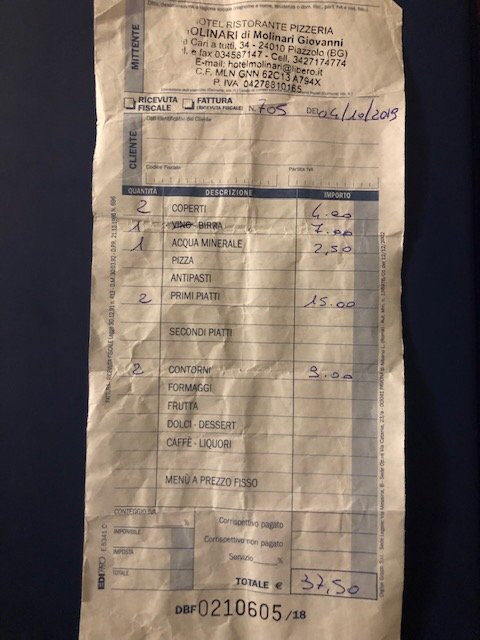 MITTENTE
HOTEL RISTORANTE PIZZERIA
OLINARI di Molinari Giovanni
Cari a tutti, 34 - 24010 Piazzolo (BG)
. e fax 034587147 - Cell. 3427174774
E-mail: hotelmolinari@libero.it
C.F. MLN GNN 62C13 A794X
P. IVA 04278810165
RICEVUTA FISCALE
FATTURA (RICEVUTA FISCALE) N. 705 DEL 04/10/2019
CLIENTE
Dati Identificativi del Cliente
Codice Fiscale Partita IVA
QUANTITÀ DESCRIZIONE IMPORTO
2 COPERTI 4.00
1 VINO - BIRRA 7.00
1 ACQUA MINERALE 2,50
PIZZA
ANTIPASTI
2 PRIMI PIATTI 15.00
SECONDI PIATTI
2 CONTORNI 9.00
FORMAGGI
FRUTTA
DOLCI - DESSERT
CAFFÈ - LIQUORI
MENÙ A PREZZO FISSO
CONTEGGIO IVA
% Corrispettivo pagato
IMPONIBILE
Corrispettivo non pagato
IMPOSTA
Servizio %
TOTALE
TOTALE € 37,50
EDIPRO E 5341 C
DBF 0210605 /18